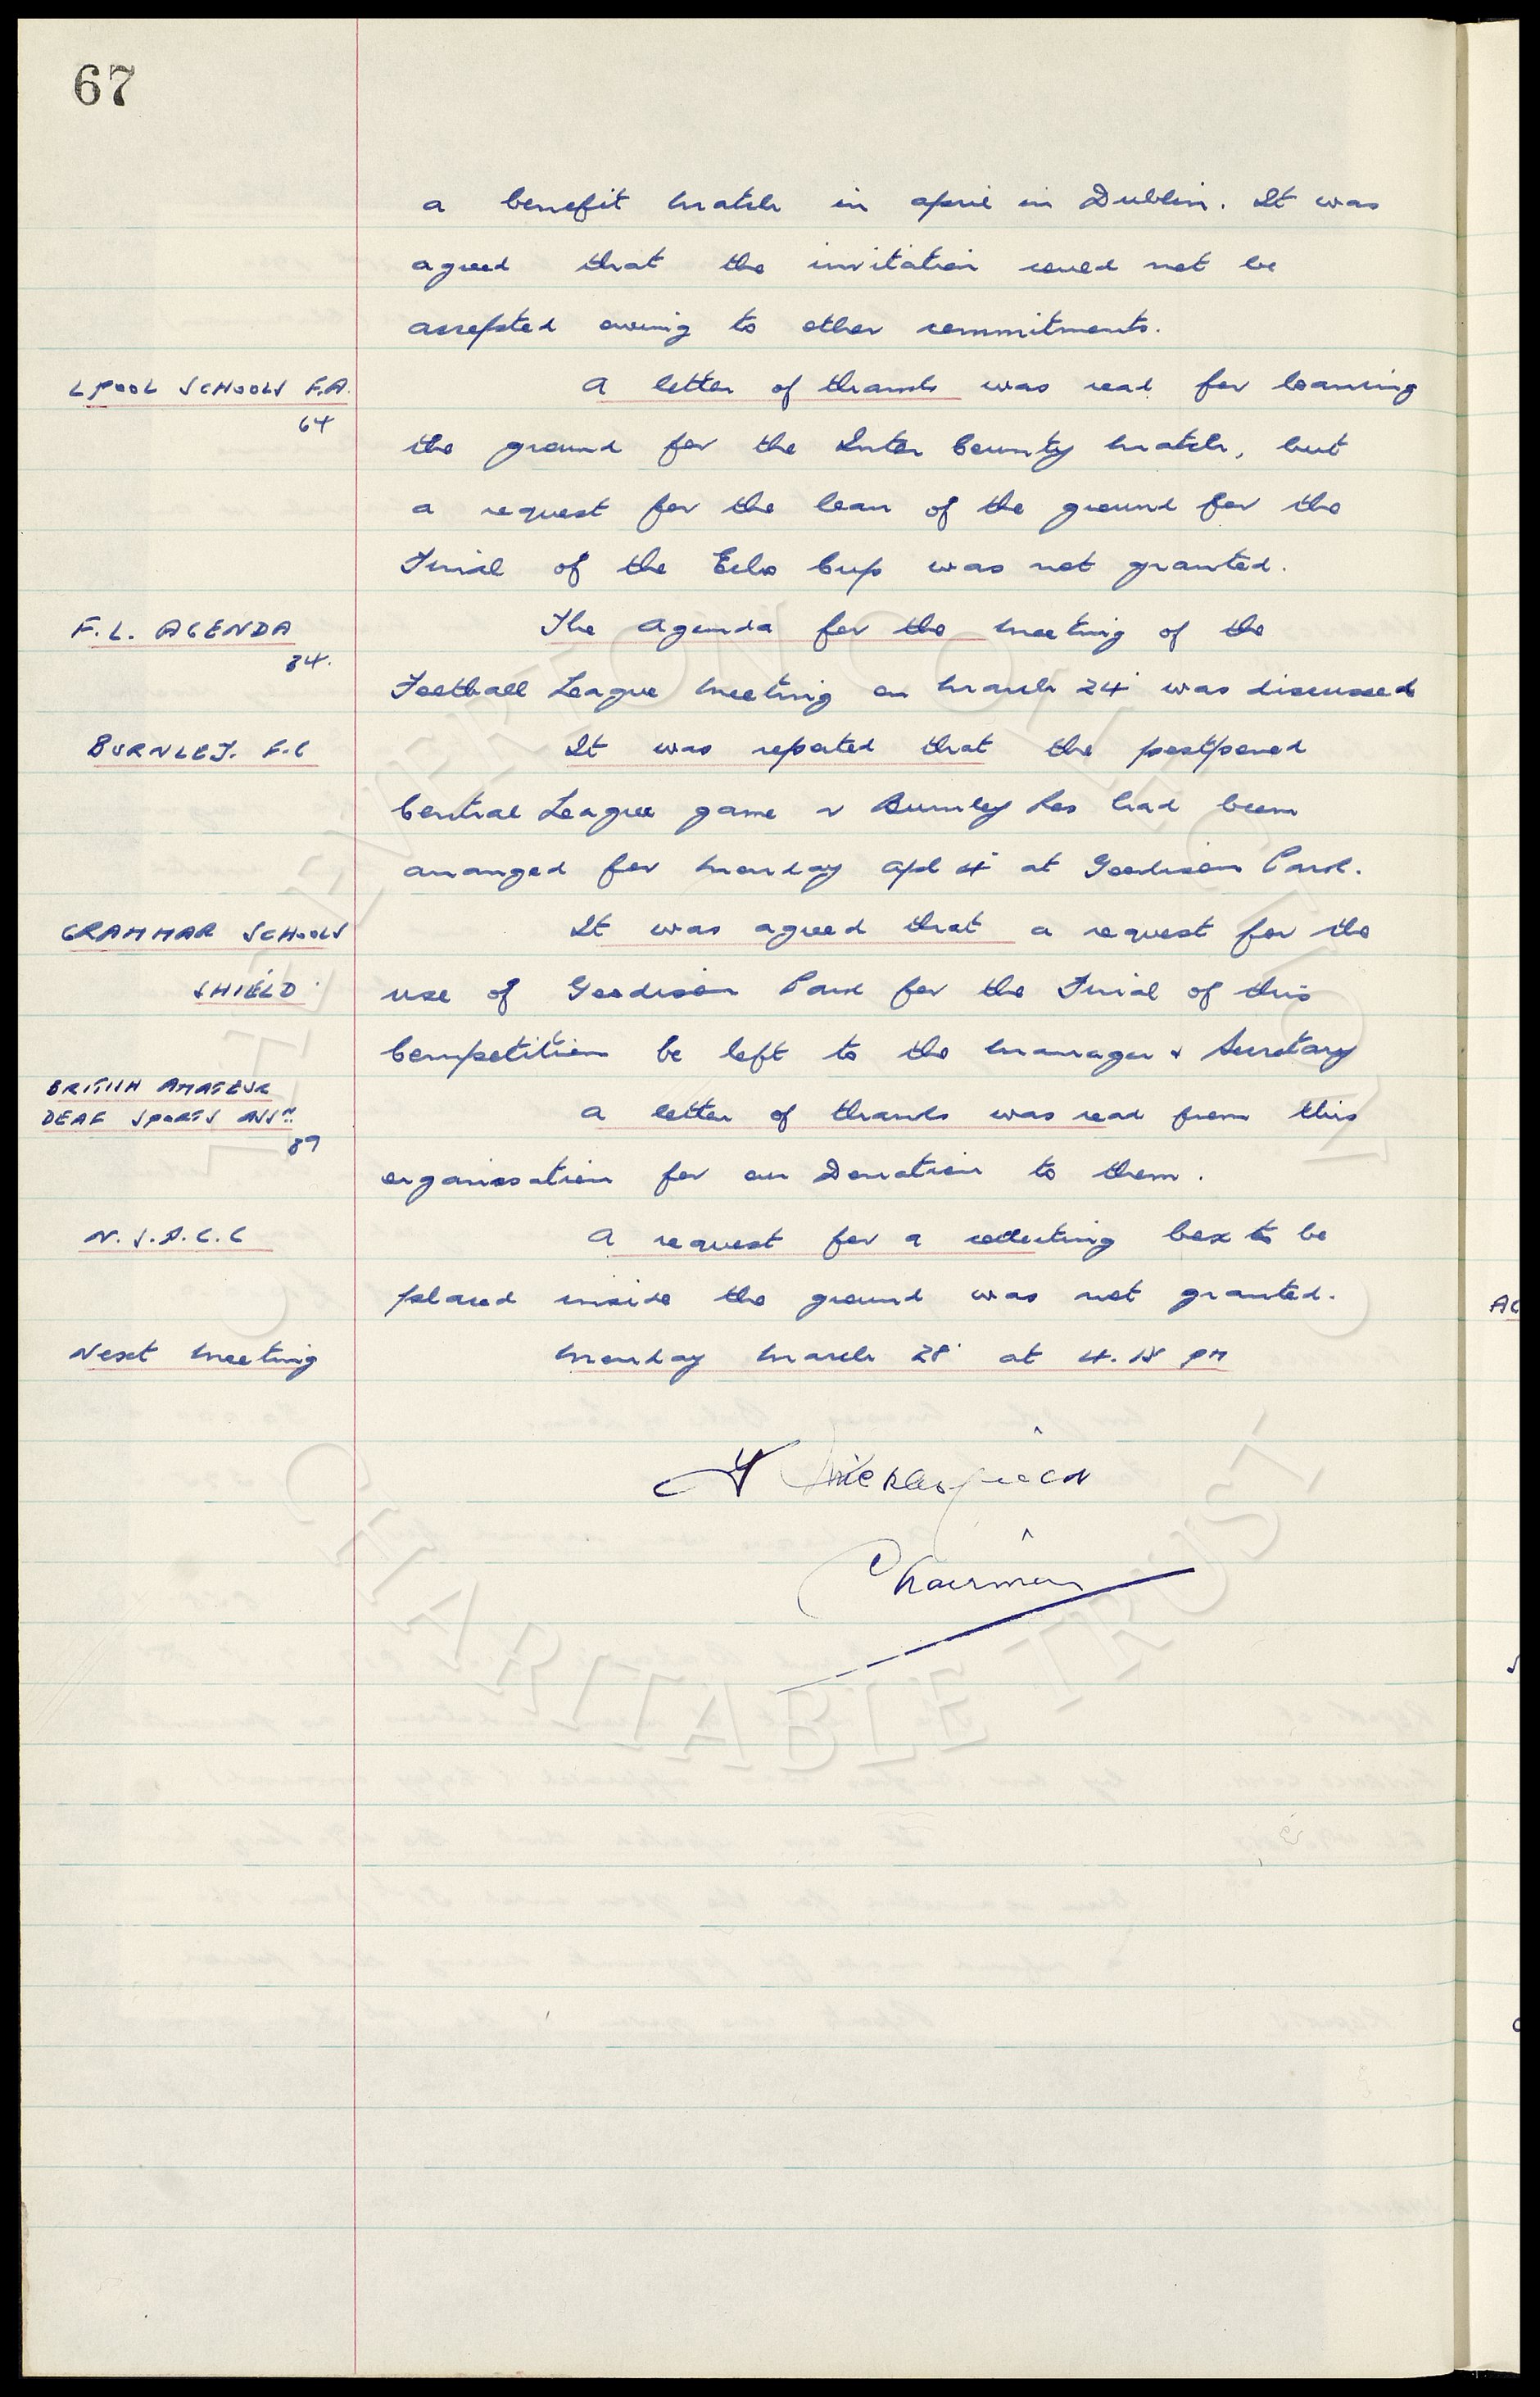 67
a benefit match in April in Dublin. It was
agreed that the invitation could not be
accepted owing to other commitments.
LPOOL SCHOOLS F.A. A letter of thanks was read for loaning
64
the ground for the Inter County match, but
a request for the loan of the ground for the
Final of the Echo Cup was not granted.
F.L. AGENDA The Agenda for the meeting of the
84.
Football League Meeting on March 24 was discussed
BURNLEY. F.C It was reported that the postponed
Central League game v Burnley Res had been
arranged for Monday Apl 4 at Goodison Park.
GRAMMAR SCHOOLS It was agreed that a request for the
SHIELD use of Goodison Park for the Final of this
Competition be left to the Manager & Secretary
BRITISH AMATEUR
DEAF SPORTS ASSN A letter of thanks was read from this
89
organisation for our Donation to them.
N.S.P.C.C A request for a collecting box to be
placed inside the ground was not granted.
Next Meeting Monday March 28 at 4.15 PM
Chairman
EVERTON COLLECTION
CHARITABLE TRUST